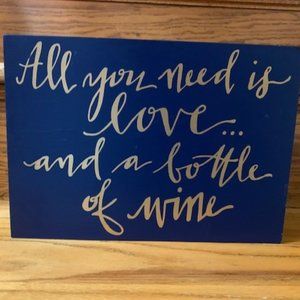 All you need is
love...
and a bottle
of wine